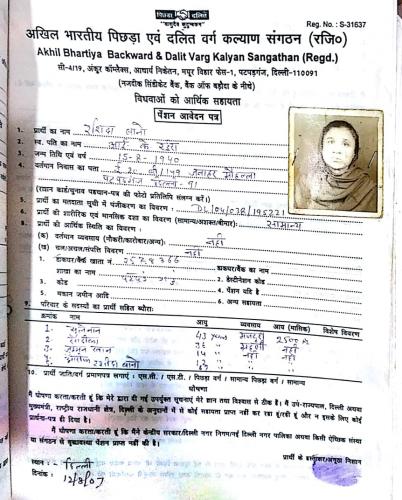 पिछड़ा दलित
Reg. No. : S-31637
अखिल भारतीय पिछड़ा एवं दलित वर्ग कल्याण संगठन (रजि०)
Akhil Bhartiya Backward & Dalit Varg Kalyan Sangathan (Regd.)
सी-4/19, अंकुर कॉम्लैक्स, आचार्य निकेतन, मयूर विहार फेस-1, पटपड़गंज, दिल्ली-110091
(नजदीक सिंडीकेट बैंक, बैंक ऑफ बड़ौदा के नीचे)
विधवाओं को आर्थिक सहायता
पेंशन आवेदन पत्र
१. प्रार्थी का नाम रशिदा बानो
२. स्व. पति का नाम
३. जन्म तिथि एवं वर्ष 15-8-1940
४. वर्तमान निवास का पता
दिल्ली-91
(राशन कार्ड/चुनाव पहचान-पत्र की फोटो प्रतिलिपि संलग्न करें।)
५. प्रार्थी का मतदाता सूची में पंजीकरण का विवरण : DL/04/038/195221
६. प्रार्थी की शारीरिक एवं मानसिक दशा का विवरण (सामान्य/अशक्त/बीमार): सामान्य
८. प्रार्थी की आर्थिक स्थिति का विवरण :
(क) वर्तमान व्यवसाय (नौकरी/कारोबार/अन्य): नही
(ख) चल/अचल/संपत्ति विवरण नही
1. डाकघर/बैंक खाता नं. डाकघर/बैंक का नाम
शाखा का नाम 2. डेस्टीनेशन कोड
3. कोड 4. पेंशन यदि है
5. मकान जमीन आदि 6. अन्य सहायता
९. परिवार के सदस्यों का प्रार्थी सहित ब्यौरा:
क्रमांक नाम आयु व्यवसाय आय (मासिक) विशेष विवरण
1. 43 मजदूरी 2500
2. नही
3. 14 नही नही
4. बानो नही
१०. प्रार्थी जाति/वर्ग प्रमाणपत्र लगाएं : एस.सी. / एस.टी. / पिछड़ा वर्ग / सामान्य पिछड़ा वर्ग / सामान्य
घोषणा
मैं घोषणा करता/करती हूं कि मेरे द्वारा दी गई उपर्युक्त सूचनाएं मेरे ज्ञान तथा विश्वास से ठीक है। मैं उपराज्यपाल, दिल्ली अथवा
मुख्यमंत्री, राष्ट्रीय राजधानी क्षेत्र, दिल्ली के अनुदानों में से कोई सहायता प्राप्त नहीं कर रहा हूं/रही हूं और न इसके लिए कोई
प्रार्थना-पत्र ही दिया है।
मैं घोषणा करता/करती हूं कि मैंने केन्द्रीय सरकार/दिल्ली नगर निगम/नई दिल्ली नगर पालिका अथवा किसी ऐच्छिक संस्था
या संगठन से वृद्धावस्था पेंशन प्राप्त नहीं की है।
प्रार्थी के हस्ताक्षर/अंगूठा निशान
स्थान: दिल्ली
दिनांक: 12/8/07